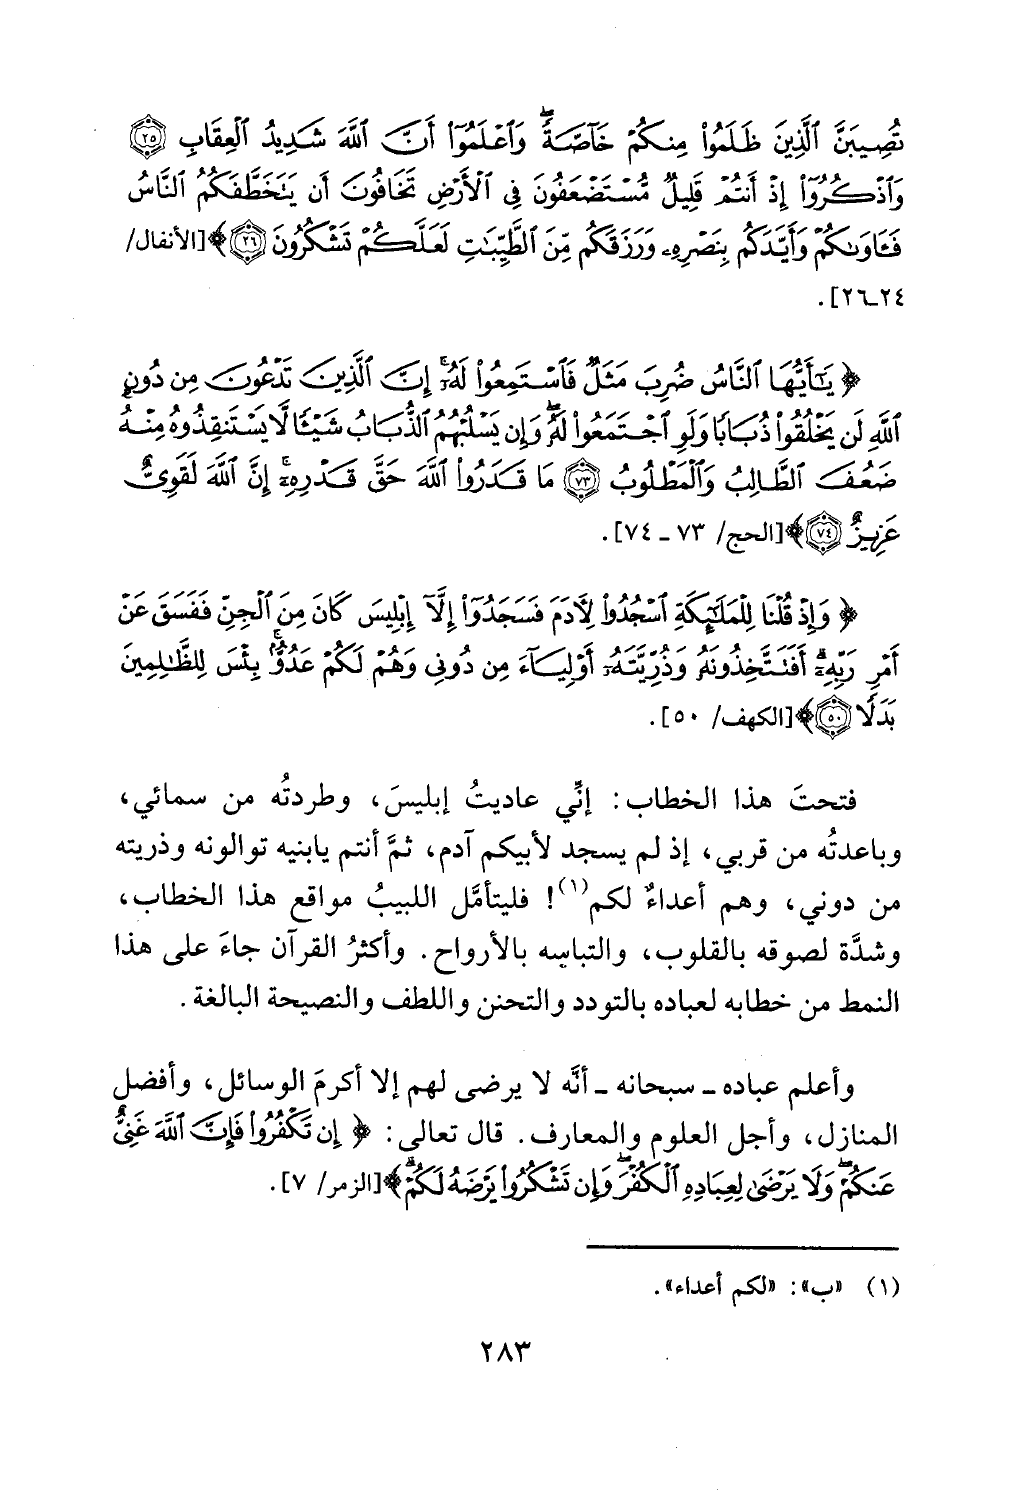 تُصِيبَنَّ ٱلَّذِينَ ظَلَمُوا۟ مِنكُمْ خَآصَّةً ۖ وَٱعْلَمُوٓا۟ أَنَّ ٱللَّهَ شَدِيدُ ٱلْعِقَابِ ﴿٢٥﴾
وَٱذْكُرُوٓا۟ إِذْ أَنتُمْ قَلِيلٌ مُّسْتَضْعَفُونَ فِى ٱلْأَرْضِ تَخَافُونَ أَن يَتَخَطَّفَكُمُ ٱلنَّاسُ
فَـَٔاوَىٰكُمْ وَأَيَّدَكُم بِنَصْرِهِۦ وَرَزَقَكُم مِّنَ ٱلطَّيِّبَـٰتِ لَعَلَّكُمْ تَشْكُرُونَ ﴿٢٦﴾﴾ [الأنفال/
٢٤ـ٢٦].
﴿ يَـٰٓأَيُّهَا ٱلنَّاسُ ضُرِبَ مَثَلٌ فَٱسْتَمِعُوا۟ لَهُۥٓ ۚ إِنَّ ٱلَّذِينَ تَدْعُونَ مِن دُونِ
ٱللَّهِ لَن يَخْلُقُوا۟ ذُبَابًا وَلَوِ ٱجْتَمَعُوا۟ لَهُۥ ۖ وَإِن يَسْلُبْهُمُ ٱلذُّبَابُ شَيْـًٔا لَّا يَسْتَنقِذُوهُ مِنْهُ
ضَعُفَ ٱلطَّالِبُ وَٱلْمَطْلُوبُ ﴿٧٣﴾ مَا قَدَرُوا۟ ٱللَّهَ حَقَّ قَدْرِهِۦٓ ۚ إِنَّ ٱللَّهَ لَقَوِىٌّ
عَزِيزٌ ﴿٧٤﴾﴾ [الحج/ ٧٣ ـ ٧٤].
﴿ وَإِذْ قُلْنَا لِلْمَلَـٰٓئِكَةِ ٱسْجُدُوا۟ لِـَٔادَمَ فَسَجَدُوٓا۟ إِلَّآ إِبْلِيسَ كَانَ مِنَ ٱلْجِنِّ فَفَسَقَ عَنْ
أَمْرِ رَبِّهِۦٓ ۗ أَفَتَتَّخِذُونَهُۥ وَذُرِّيَّتَهُۥٓ أَوْلِيَآءَ مِن دُونِى وَهُمْ لَكُمْ عَدُوٌّۢ ۚ بِئْسَ لِلظَّـٰلِمِينَ
بَدَلًا ﴿٥٠﴾﴾ [الكهف/ ٥٠].
فتحتَ هذا الخطاب: إنِّي عاديتُ إبليسَ، وطردتُه من سمائي،
وباعدتُه من قربي، إذ لم يسجد لأبيكم آدم، ثمَّ أنتم يابنيه توالونه وذريته
من دوني، وهم أعداءٌ لكم(١)! فليتأمَّل اللبيبُ مواقع هذا الخطاب،
وشدَّة لصوقه بالقلوب، والتباسِه بالأرواح. وأكثرُ القرآن جاءَ على هذا
النمط من خطابه لعباده بالتودد والتحنن واللطف والنصيحة البالغة.
وأعلم عباده ـ سبحانه ـ أنَّه لا يرضى لهم إلا أكرمَ الوسائل، وأفضل
المنازل، وأجل العلوم والمعارف. قال تعالى: ﴿ إِن تَكْفُرُوا۟ فَإِنَّ ٱللَّهَ غَنِىٌّ
عَنكُمْ ۖ وَلَا يَرْضَىٰ لِعِبَادِهِ ٱلْكُفْرَ ۖ وَإِن تَشْكُرُوا۟ يَرْضَهُ لَكُمْ ۗ ﴾ [الزمر/ ٧].
(١) «ب»: «لكم أعداء».
٢٨٣